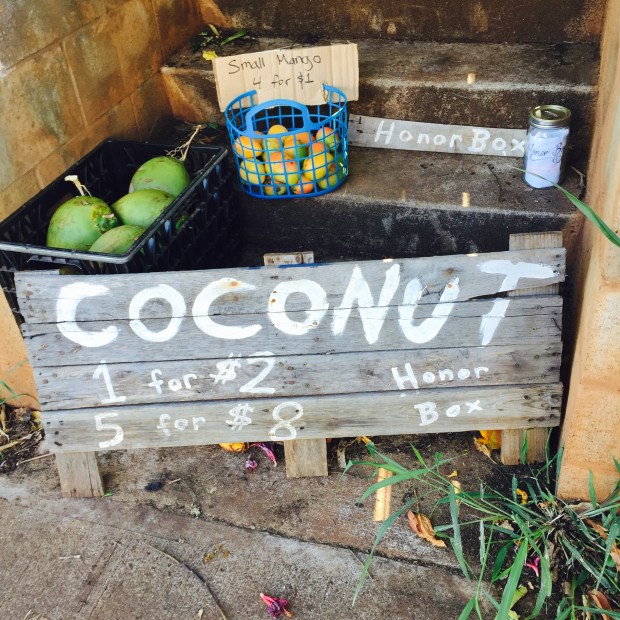 Small Mango
4 for $1
Honor Box
COCONUT
1 for $2
5 for $8
Honor
Box